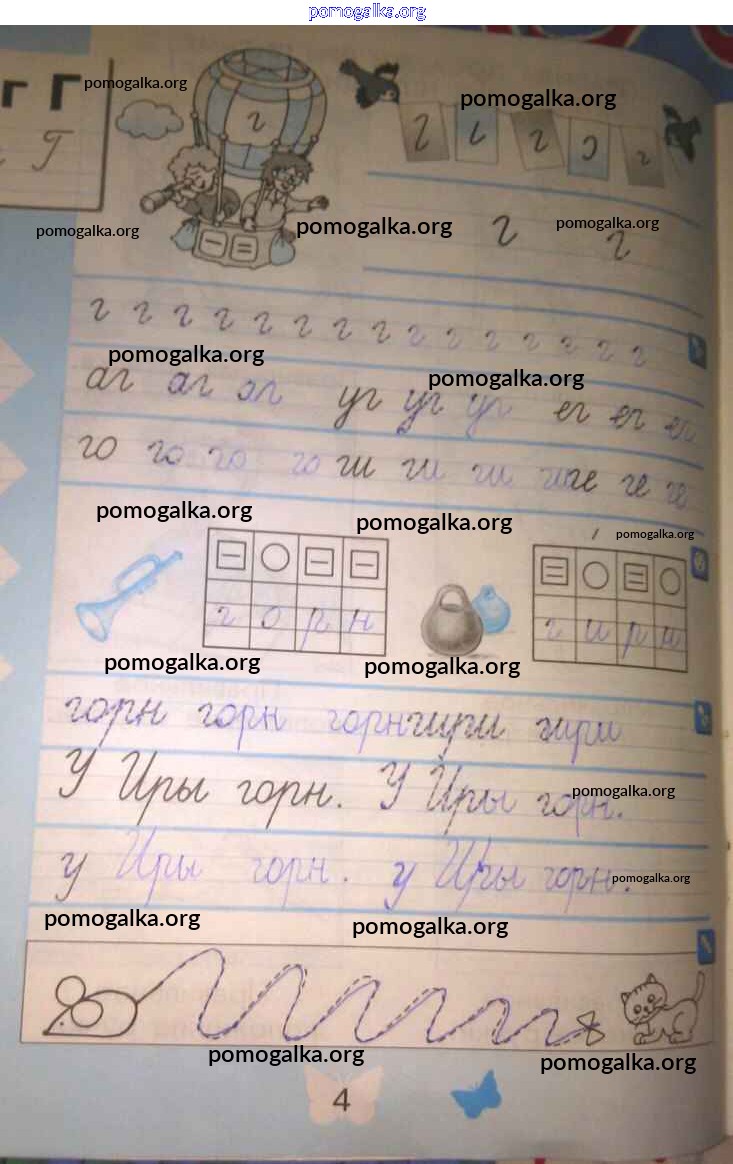 pomogalka.org
г Г pomogalka.org
Г
г
pomogalka.org
г г г г г
pomogalka.org pomogalka.org pomogalka.org
г г
г г г г г г г г г г г г г г г
pomogalka.org
pomogalka.org
аг аг аг уг уг уг ег ег ег
го го го го ги ги ги ги ге ге ге
pomogalka.org pomogalka.org pomogalka.org
г о р н г и р и
pomogalka.org pomogalka.org
горн горн горн гири гири
У Иры горн. У Иры горн.
pomogalka.org
у Иры горн. у Иры горн.
pomogalka.org
pomogalka.org pomogalka.org
pomogalka.org pomogalka.org
4